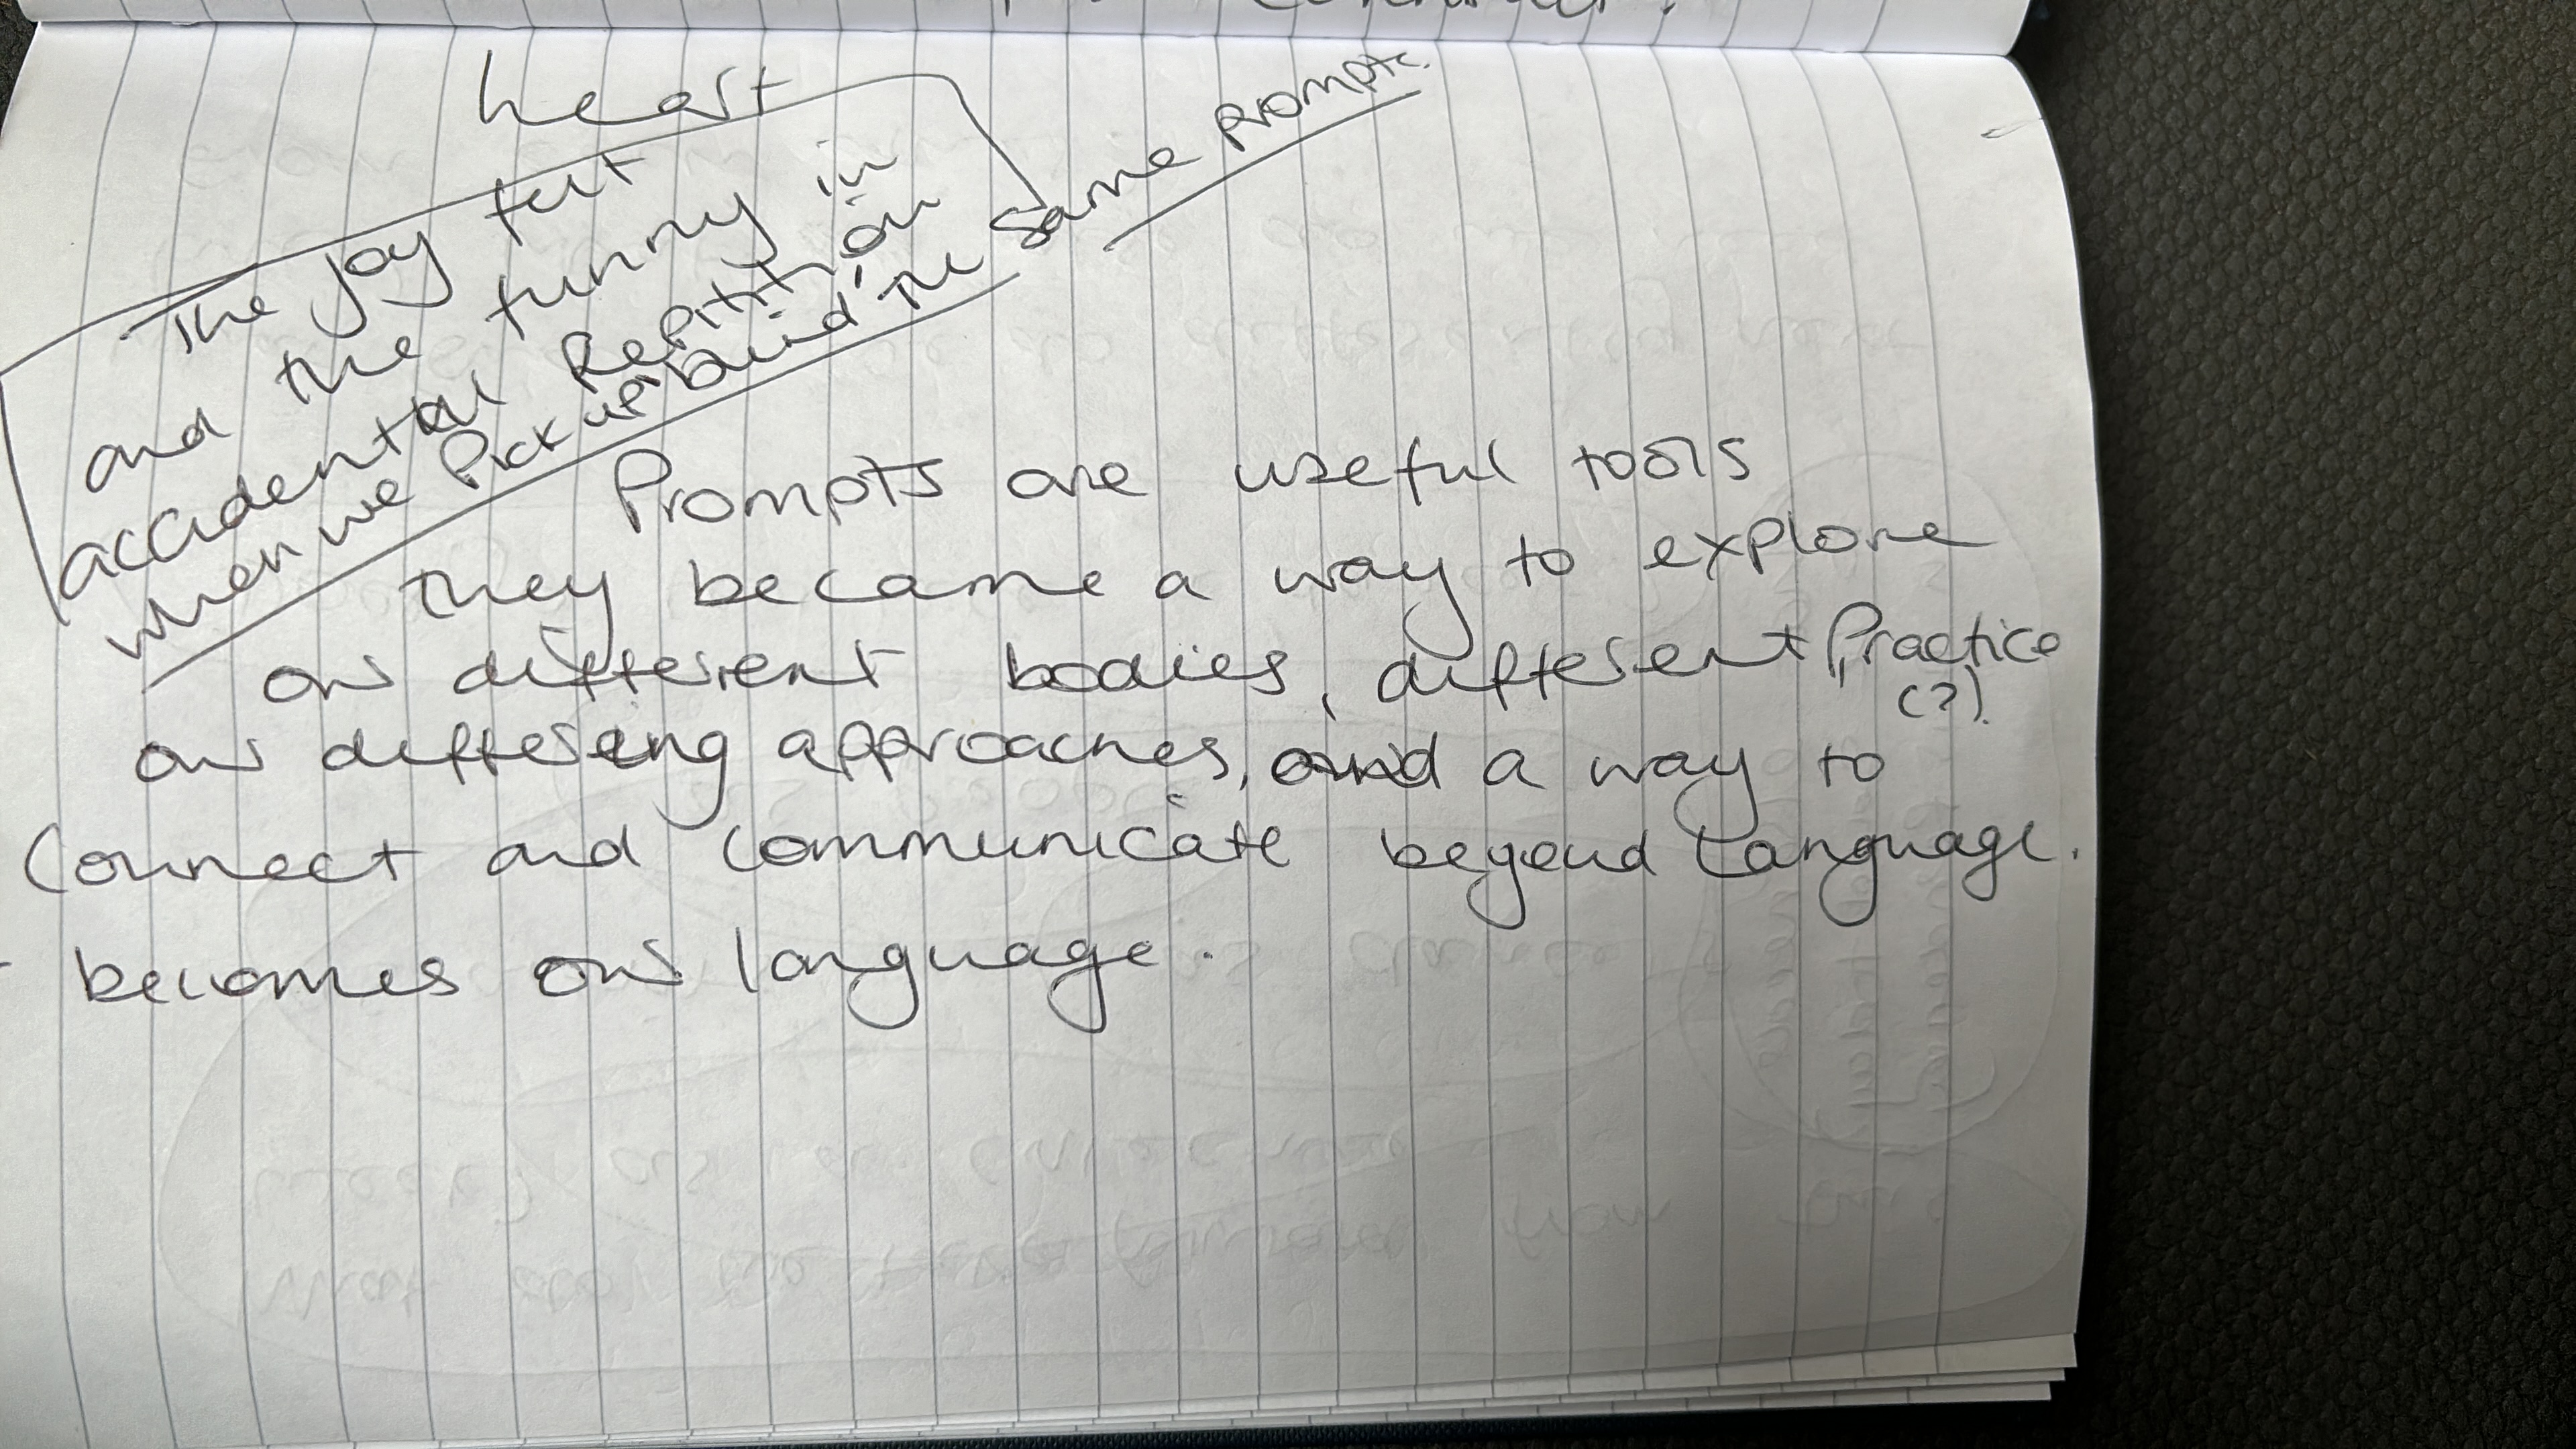 heart
The joy felt
and the funny in
accidental Repitition
when we Pick up 'blind' The same prompt.
Prompts are useful tools
they became a way to explore
our different bodies, different Practice
(?).
our differing approaches, and a way to
Connect and communicate beyond Language.
- becomes our language.